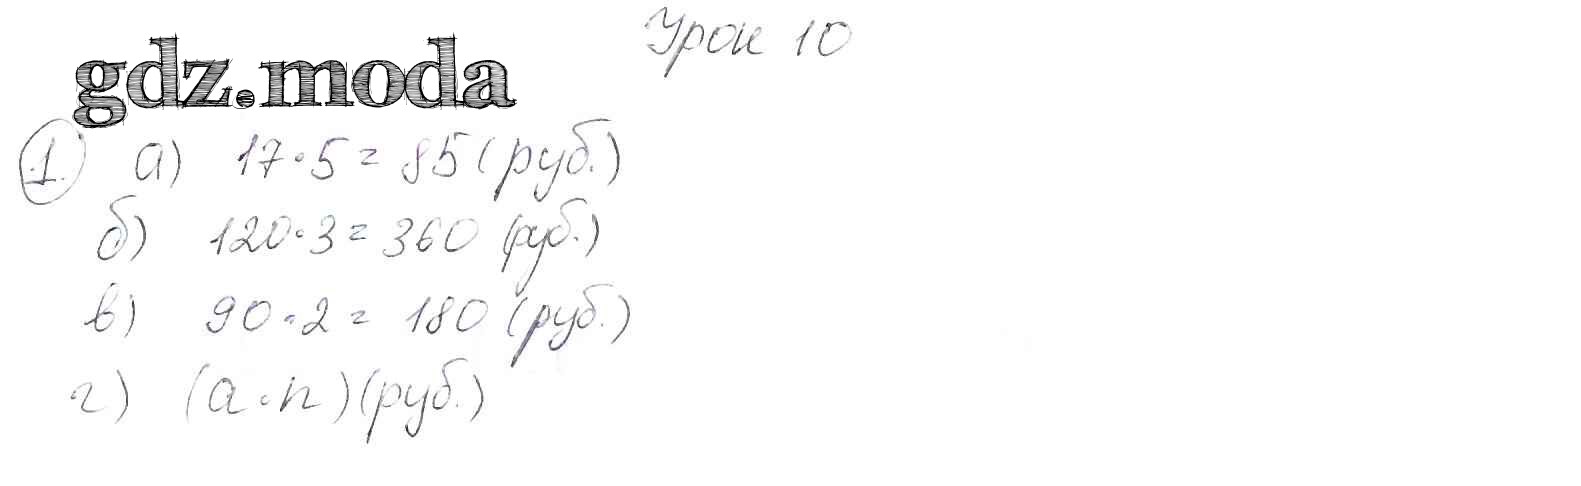 Урок 10
gdz.moda
1. а) 17·5 = 85 (руб.)
б) 120·3 = 360 (руб.)
в) 90·2 = 180 (руб.)
г) (a·n) (руб.)